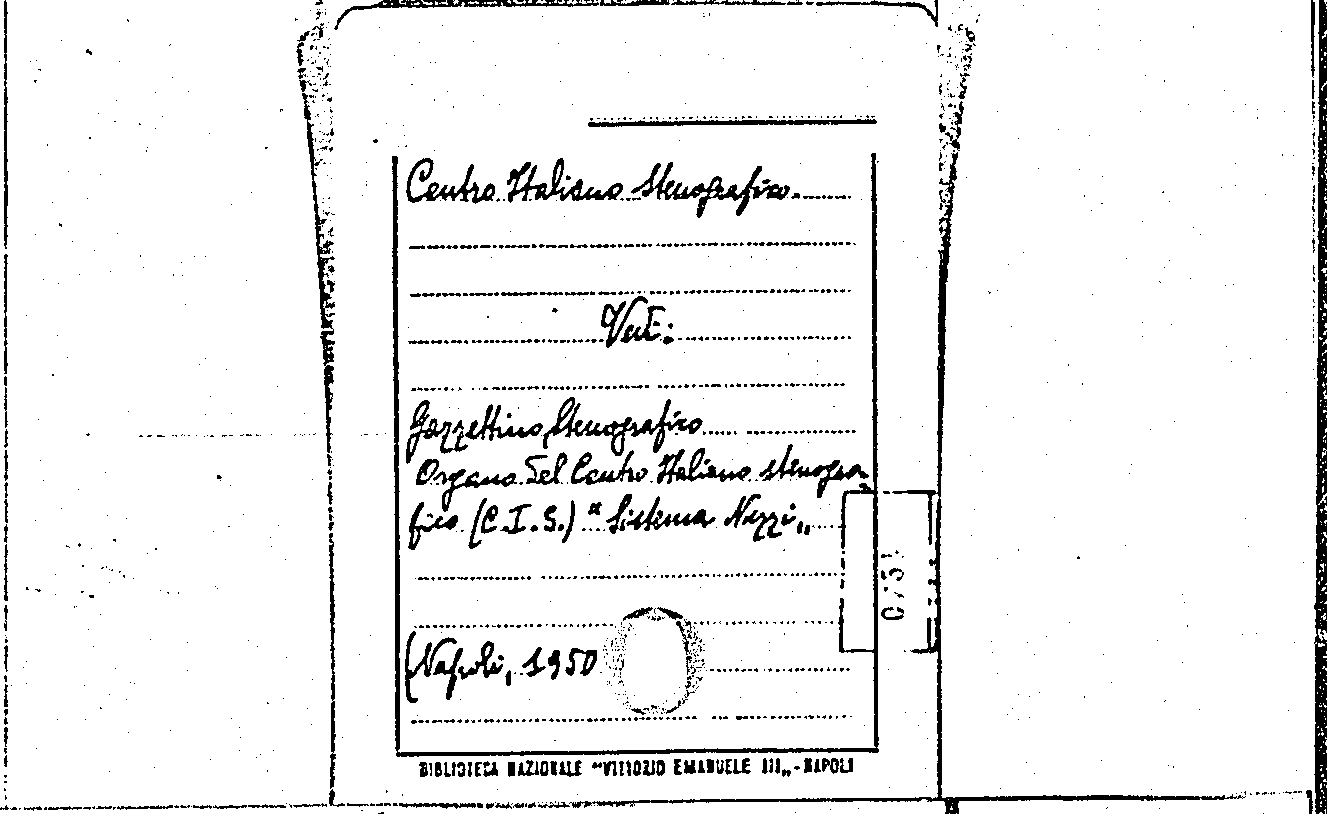 Centro Italiano Stenografico.
Vedi:
Gazzettino Stenografico
Organo del Centro Italiano stenogra-
fico (C.I.S.) "Sistema Nezzi„
(Napoli, 1950
BIBLIOTECA NAZIONALE "VITTORIO EMANUELE III„ - NAPOLI